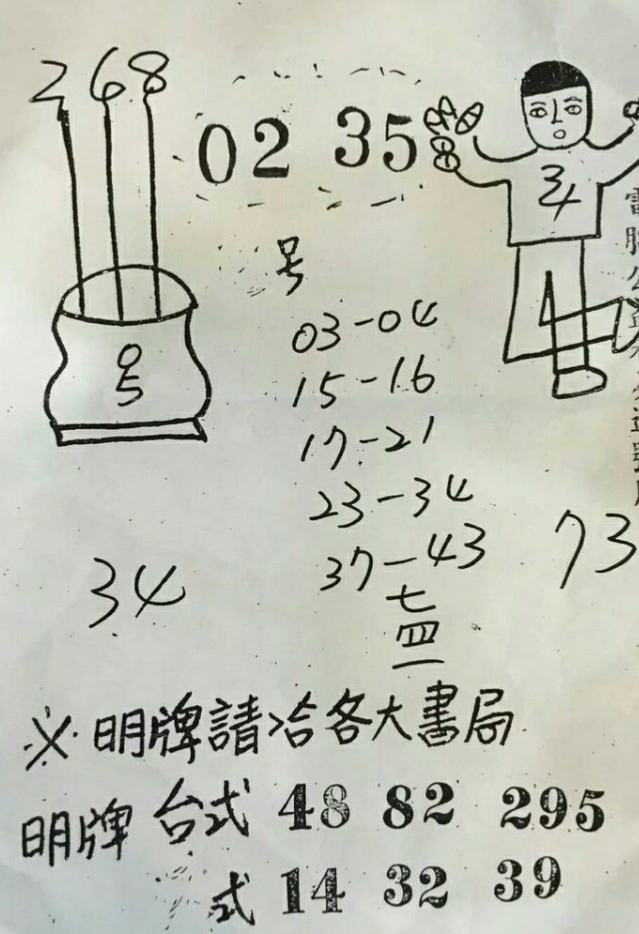 268
02 35
34
号
05
03-04
15-16
17-21
23-34
37-43
34
73
七四一
※明牌請洽各大書局
明牌 台式 48 82 295
式 14 32 39